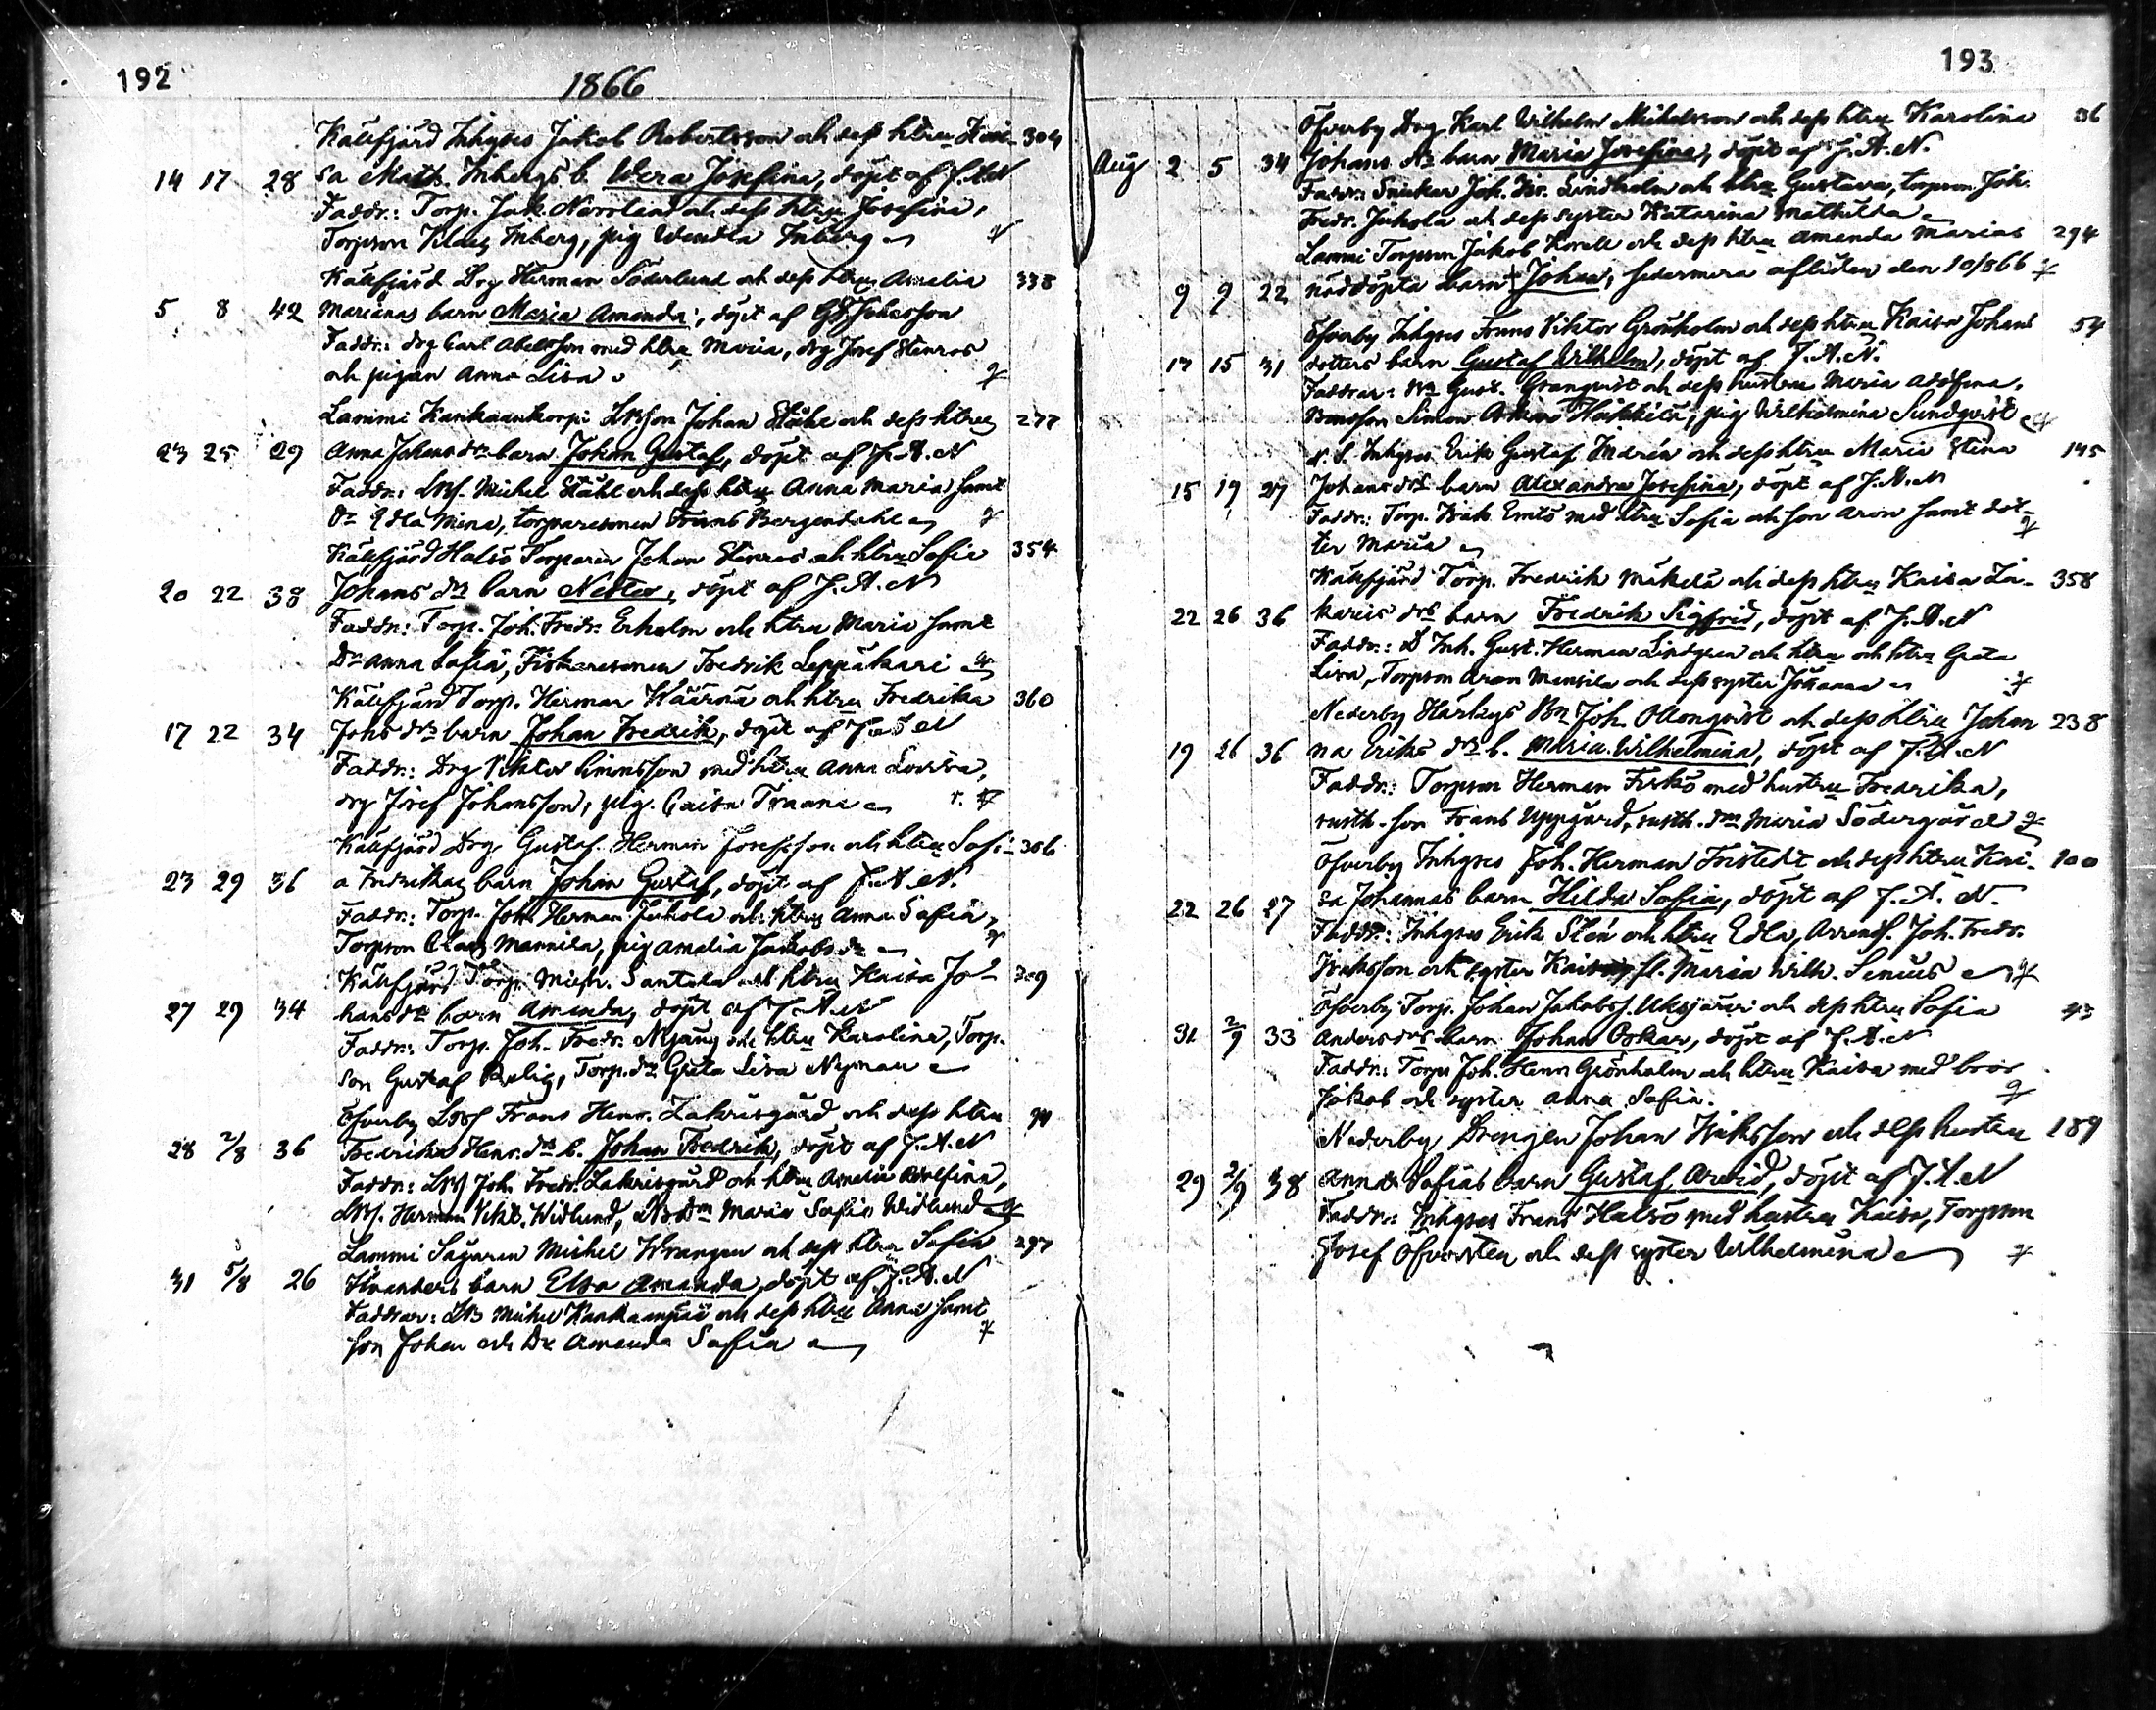 192
1866
Källfjärd Inhyses Jakob Robertsson och dess htru Kai- 304
14 17 28 sa Math. Inbergs b. Wera Josefina, döpt af J.A.N
Faddr.: Torp. Jak. Norrland och dess htru Josefina,
Torpson Inberg, pig Wendla Inberg
Källfjärd Drg Herman Söderlund och dess htru Amalia 338
5 8 42 Marianas barn Maria Amanda, döpt af Johansson
Faddr.: drg Carl Abelsson med htru Maria, drg Josef Stenros
och pigan Anna Lisa
Lammi Kankaankorpi Johan Ståhl och dess htru 277
23 25 29 Anna Johans dr barn Johan Gustaf, döpt af J.A.N
Faddr.: Michel Ståhl och dess htru Anna Maria samt
Dr Edla Mina, torparesonen Frans Bergendahl
Källfjärd Halsö Torparen Johan Stenros och htru Sofia 354
20 22 38 Johans dr barn Nestor, döpt af J.A.N
Faddr.: Torp. Joh. Fredr. Erholm och htru Maria samt
Dr Anna Sofia, Fiskaresonen Fredrik Leppäkari
Källfjärd Torp. Herman Wäärnä och htru Fredrika 360
17 22 34 Johs drs barn Johan Fredrik, döpt af J.A.N
Faddr.: Drg Viktor Simonsson med htru Anna Lovisa,
drg Josef Johansson, pig. Caisa Traana
Källfjärd Drg Gustaf Herman Josefsson och htru Sofi- 306
23 29 36 a Fredrikas barn Johan Gustaf, döpt af J.A.N.
Faddr.: Torp. Joh. Herman Juhola och htru Anna Sofia,
Torpson Claes Mannila, pig Amalia Jakobs dr
Källfjärd Torp. Mich. Santala och htru Kaisa Jo- 309
27 29 34 hans dr barn Amanda, döpt af J.A.N
Faddr.: Torp. Joh. Fredr. Nyäng och htru Karolina, Torp.
son Gustaf, Torp. dr Greta Lisa Nyman
Öfverby Frans Henr. Zakrisgård och dess htru
28 2/8 36 Fredrika Henr. drs b. Johan Fredrik, döpt af J.A.N
Faddr.: Joh. Fredr. Zakrisgård och htru Amalia Adolfina,
Herman Vikt. Widlund, Maria Sofia Widlund
Lammi Sågaren Michel Wrangen och dess htru Sofia 297
31 5/8 26 barn Elsa Amanda, döpt af J.A.N
Faddrar: Michel Kankaanpää och dess htru Anna samt
son Johan och Dr Amanda Sofia
193
Öfverby Drg Karl Wilhelm Mickelsson och dess htru Karolina 36
Aug 2 5 34 Johans drs barn Maria Josefina, döpt af J.A.N.
Faddr.: Snickar Joh. Lindholm och htru Gustava, torpson Joh.
Fredr. Juhola och dess syster Katarina Mathilda
Lammi Torpson Jakob Korell och dess htru Amanda Marias 294
9 9 22 nöddöpta barn Johan, sedermera afliden den 10/866
Öfverby Inhyses Frans Viktor Grönholm och dess htru Kaisa Johans 54
17 15 31 dotters barn Gustaf Wilhelm, döpt af J.A.N.
Faddrar: Gust. Granqvist och dess hustru Maria Adolfina,
Bondson Simon Oskar Heikkilä, pig Wilhelmina Sundqvist
Inhyses Erik Gustaf och dess htru Maria Stina 145
15 19 27 Johans drs barn Alexandra Josefina, döpt af J.A.N
Faddr.: Torp. Isak Emts med htru Sofia och son Aron samt dot-
ter Maria
Källfjärd Torp. Fredrik Mäkelä och dess htru Kaisa Za- 358
22 26 36 karias drs barn Fredrik Sigfrid, döpt af J.A.N
Faddr.: Inh. Gust. Herman Lindgren och htru och htru Greta
Lisa, Torpson Aron Mansila och dess syster Johanna
Nederby Härkys Joh. Ollonqvist och dess htru Johan 238
19 26 36 na Eriks drs b. Maria Wilhelmina, döpt af J.A.N
Faddr.: Torpson Herman Fiskö med hustru Fredrika,
rusth. son Frans Uppgård, rusth. Maria Södergård
Öfverby Inhyses Joh. Herman Fristedt och dess htru Kai- 100
22 26 27 sa Johannas barn Hilda Sofia, döpt af J.A.N.
Faddr.: Inhyses Erik Sten och htru Edla, Joh. Fredr.
Isaksson och syster Kaisa, fl. Maria Wilh. Senius
Öfverby Torp. Johan Jakobss. Uksjärvi och dess htru Sofia
31 2/9 33 Anders drs barn Johan Oskar, döpt af J.A.N
Faddr.: Torp Joh. Henr Grönholm och htru Kaisa med bror
Jakob och syster Anna Sofia.
Nederby Drengen Johan Isaksson och dess hustru 189
29 2/9 38 Anna Sofias barn Gustaf Arvid, döpt af J.A.N
Faddr.: Inhyses Frans Halsö med hustru Kaisa, Torpson
Josef och dess syster Wilhelmina